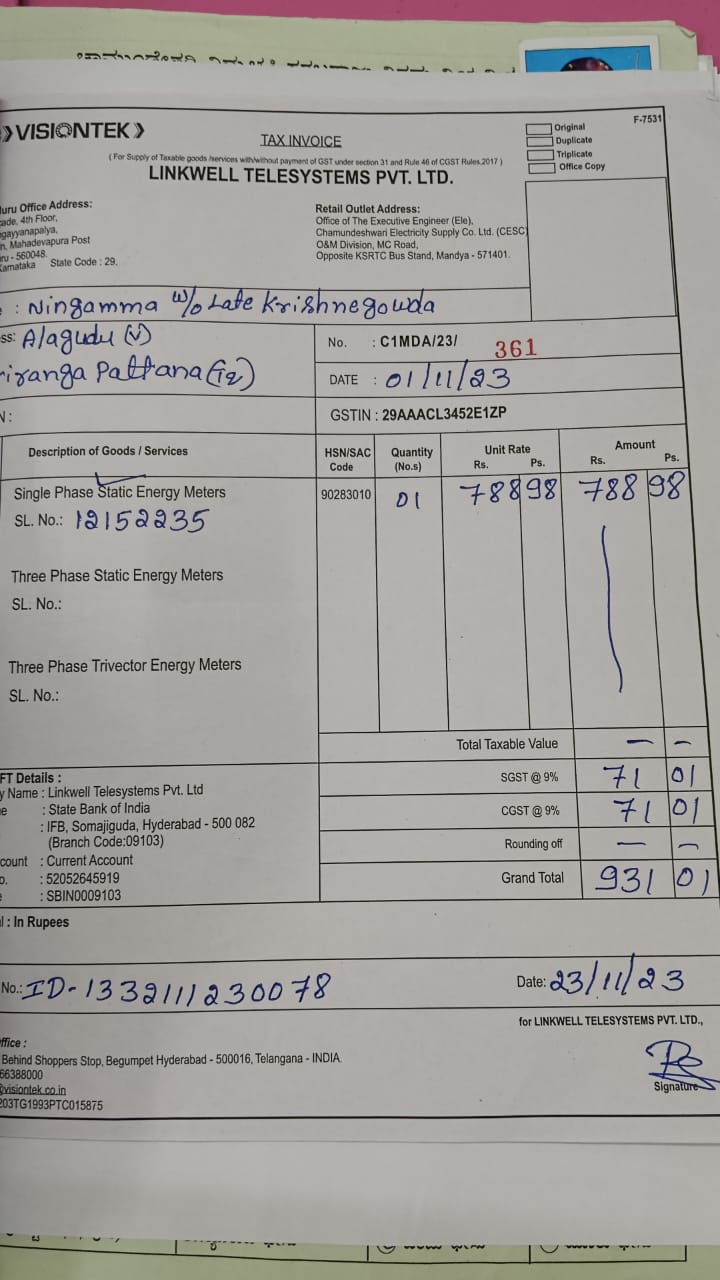 VISIONTEK
TAX INVOICE
F-7531
Original
Duplicate
Triplicate
Office Copy
( For Supply of Taxable goods /services with/without payment of GST under section 31 and Rule 46 of CGST Rules,2017 )
LINKWELL TELESYSTEMS PVT. LTD.
uru Office Address:
cade, 4th Floor,
gayyanapalya,
n, Mahadevapura Post
ru - 560048.
Karnataka State Code : 29.
Retail Outlet Address:
Office of The Executive Engineer (Ele),
Chamundeshwari Electricity Supply Co. Ltd. (CESC)
O&M Division, MC Road,
Opposite KSRTC Bus Stand, Mandya - 571401.
: Ningamma w/o Late Krishnegowda
ss: Alagudu (v)
riranga Pattana (Tq)
No. : C1MDA/23/ 361
DATE : 01/11/23
N :
GSTIN : 29AAACL3452E1ZP
Description of Goods / Services HSN/SAC Code Quantity (No.s) Unit Rate Rs. Ps. Amount Rs. Ps.
Single Phase Static Energy Meters 90283010 01 788 98 788 98
SL. No.: 12152235
Three Phase Static Energy Meters
SL. No.:
Three Phase Trivector Energy Meters
SL. No.:
Total Taxable Value — —
SGST @ 9% 71 01
CGST @ 9% 71 01
Rounding off — —
Grand Total 931 01
FT Details :
y Name : Linkwell Telesystems Pvt. Ltd
e : State Bank of India
: IFB, Somajiguda, Hyderabad - 500 082
(Branch Code:09103)
count : Current Account
o. : 52052645919
e : SBIN0009103
l : In Rupees
No.: ID-1332111230078
Date: 23/11/23
for LINKWELL TELESYSTEMS PVT. LTD.,
Signature
ffice :
Behind Shoppers Stop, Begumpet Hyderabad - 500016, Telangana - INDIA.
66388000
@visiontek.co.in
203TG1993PTC015875